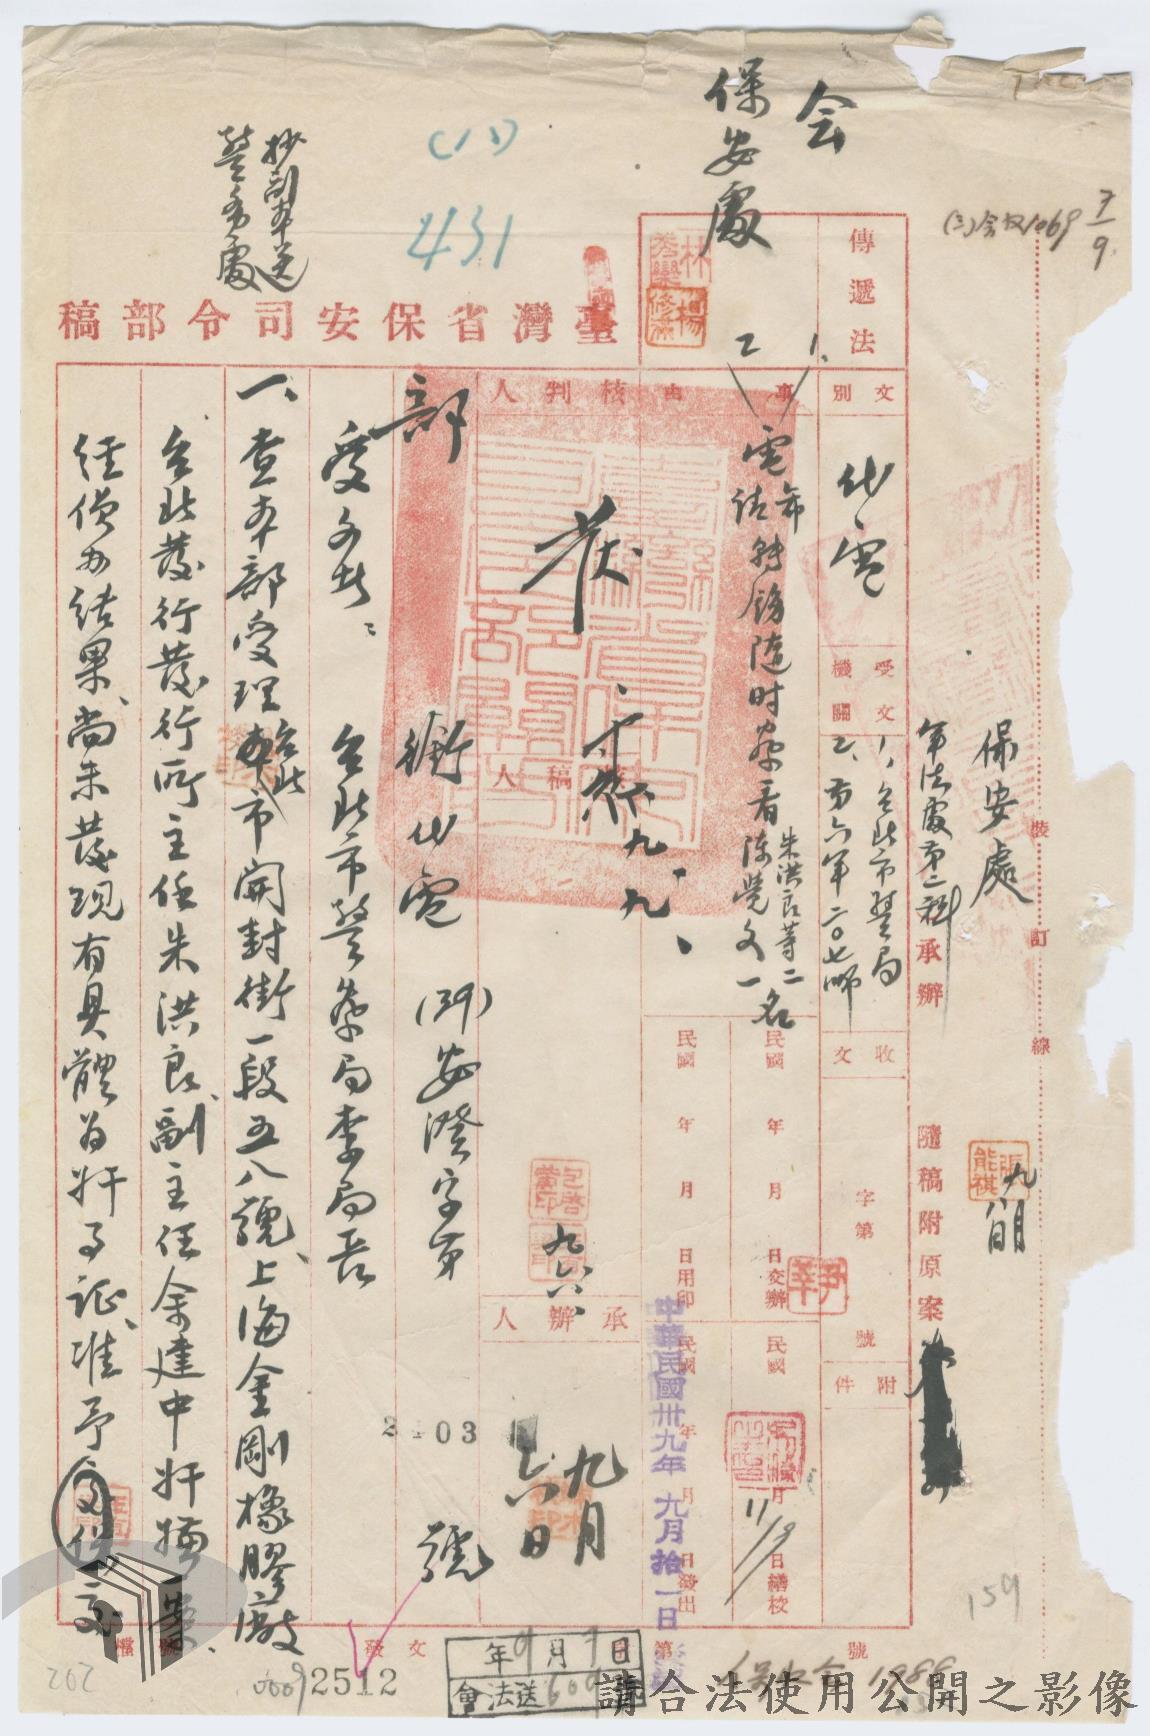 会
保安處
抄副本送
警務處
(11)
431
(三)会奴1069 7/9
臺灣省保安司令部稿
傳遞法
文別
代電
受文機關
1、台北市警局
2、第六軍二〇七師
保安處
軍法處第二科承辦
隨稿附原案
九月八日
裝
訂
線
收文
字第
號
附件
事由
1、電希
2、電請轉飭隨時察看朱洪良等二名
陳覺文一名
民國 年 月 日交辦
民國 年 月 日繕校
11/9
民國 年 月 日用印
民國 年 月 日發出
中華民國卅九年九月拾一日
核判人
九、九、
核稿人
九六、
承辦人
九月
六日
部 銜代電 (39)安澄字第 號
受文者：台北市警察局李局長
一、查本部受理台北市開封街一段五八號、上海金剛橡膠廠
台北發行所主任朱洪良、副主任余建中奸嫌案、
經偵办結果、尚未發現有具體為奸事証、准予交保
2403
發文
檔號
年9月7日
會法送
00092512
第 號
1989
202
159
請合法使用公開之影像